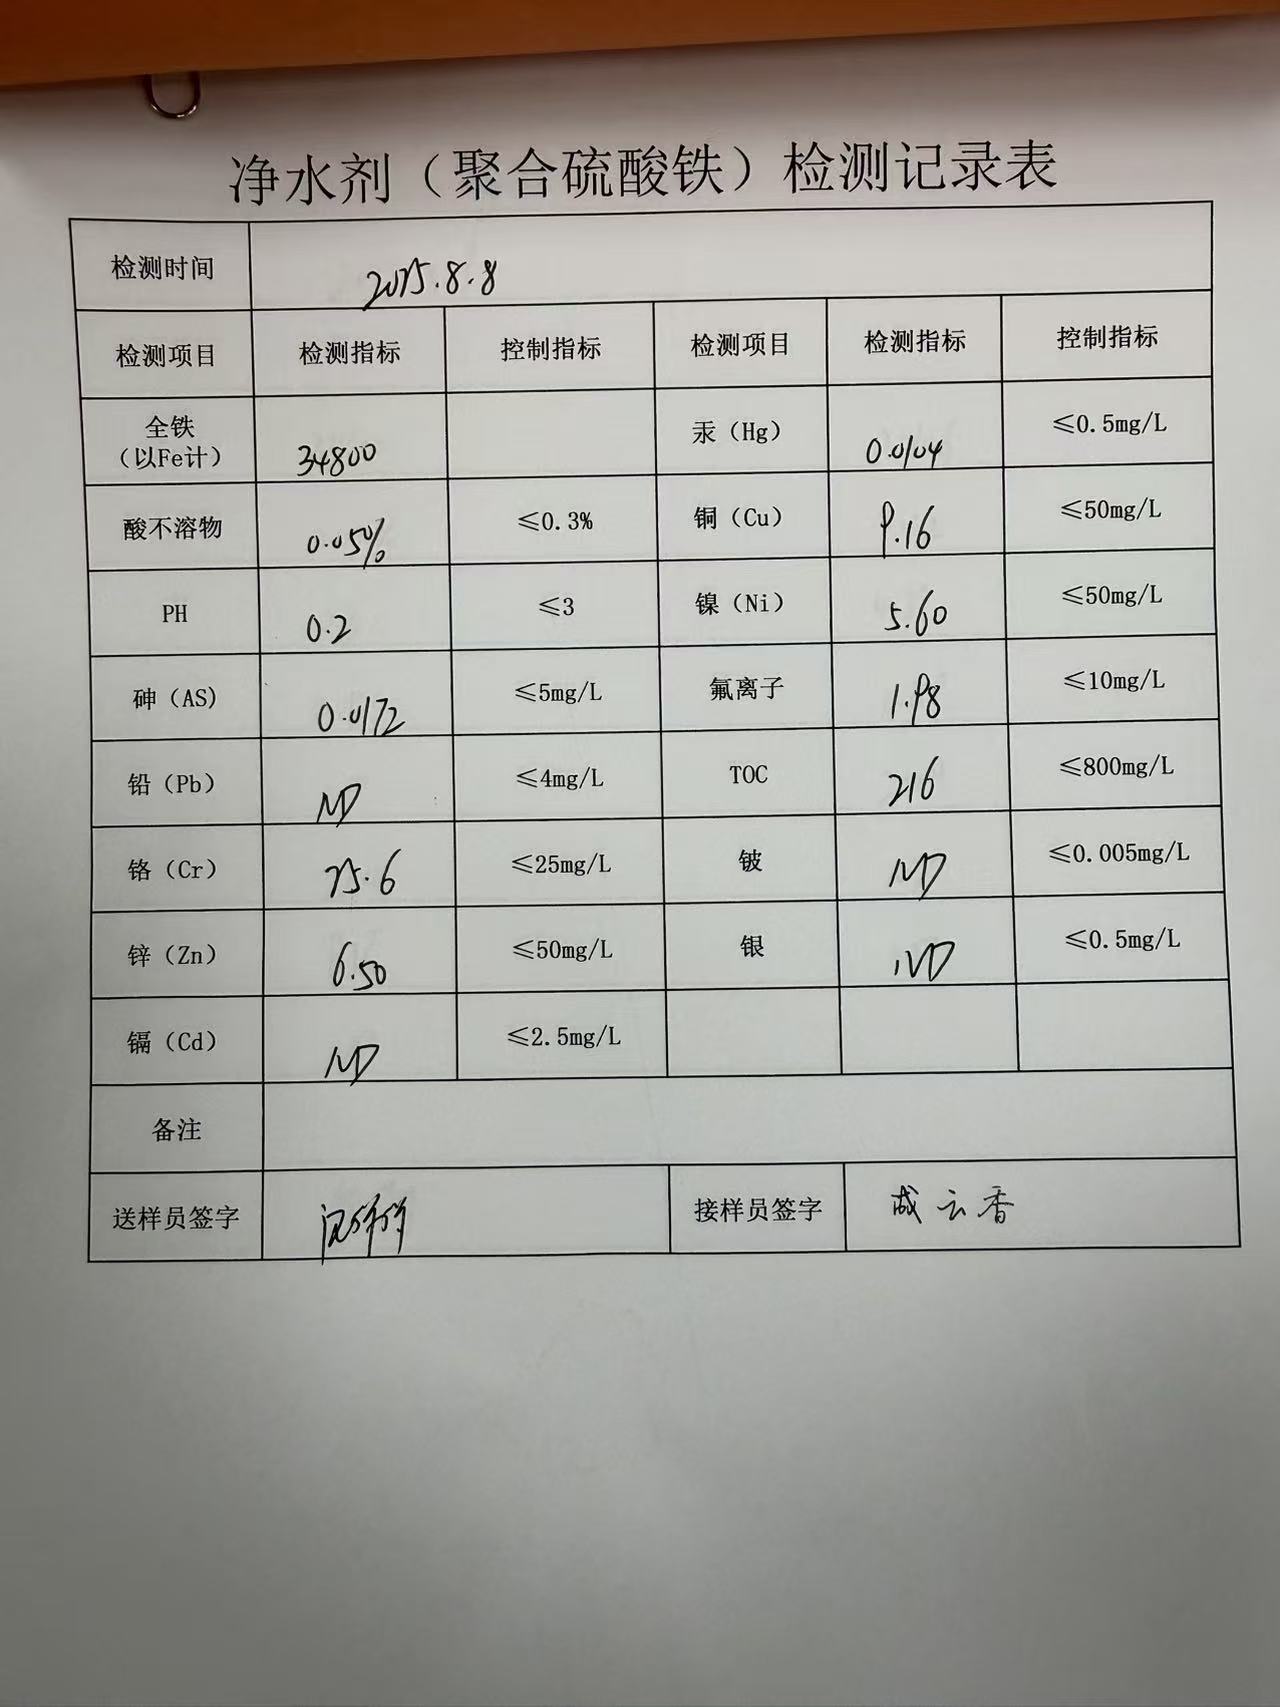 净水剂（聚合硫酸铁）检测记录表
检测时间 2025.8.8
检测项目 检测指标 控制指标 检测项目 检测指标 控制指标
全铁（以Fe计） 34800 汞（Hg） 0.0104 ≤0.5mg/L
酸不溶物 0.05% ≤0.3% 铜（Cu） 9.16 ≤50mg/L
PH 0.2 ≤3 镍（Ni） 5.60 ≤50mg/L
砷（AS） 0.0172 ≤5mg/L 氟离子 1.98 ≤10mg/L
铅（Pb） ND ≤4mg/L TOC 216 ≤800mg/L
铬（Cr） 25.6 ≤25mg/L 铍 ND ≤0.005mg/L
锌（Zn） 6.50 ≤50mg/L 银 ND ≤0.5mg/L
镉（Cd） ND ≤2.5mg/L
备注
送样员签字 接样员签字 云香